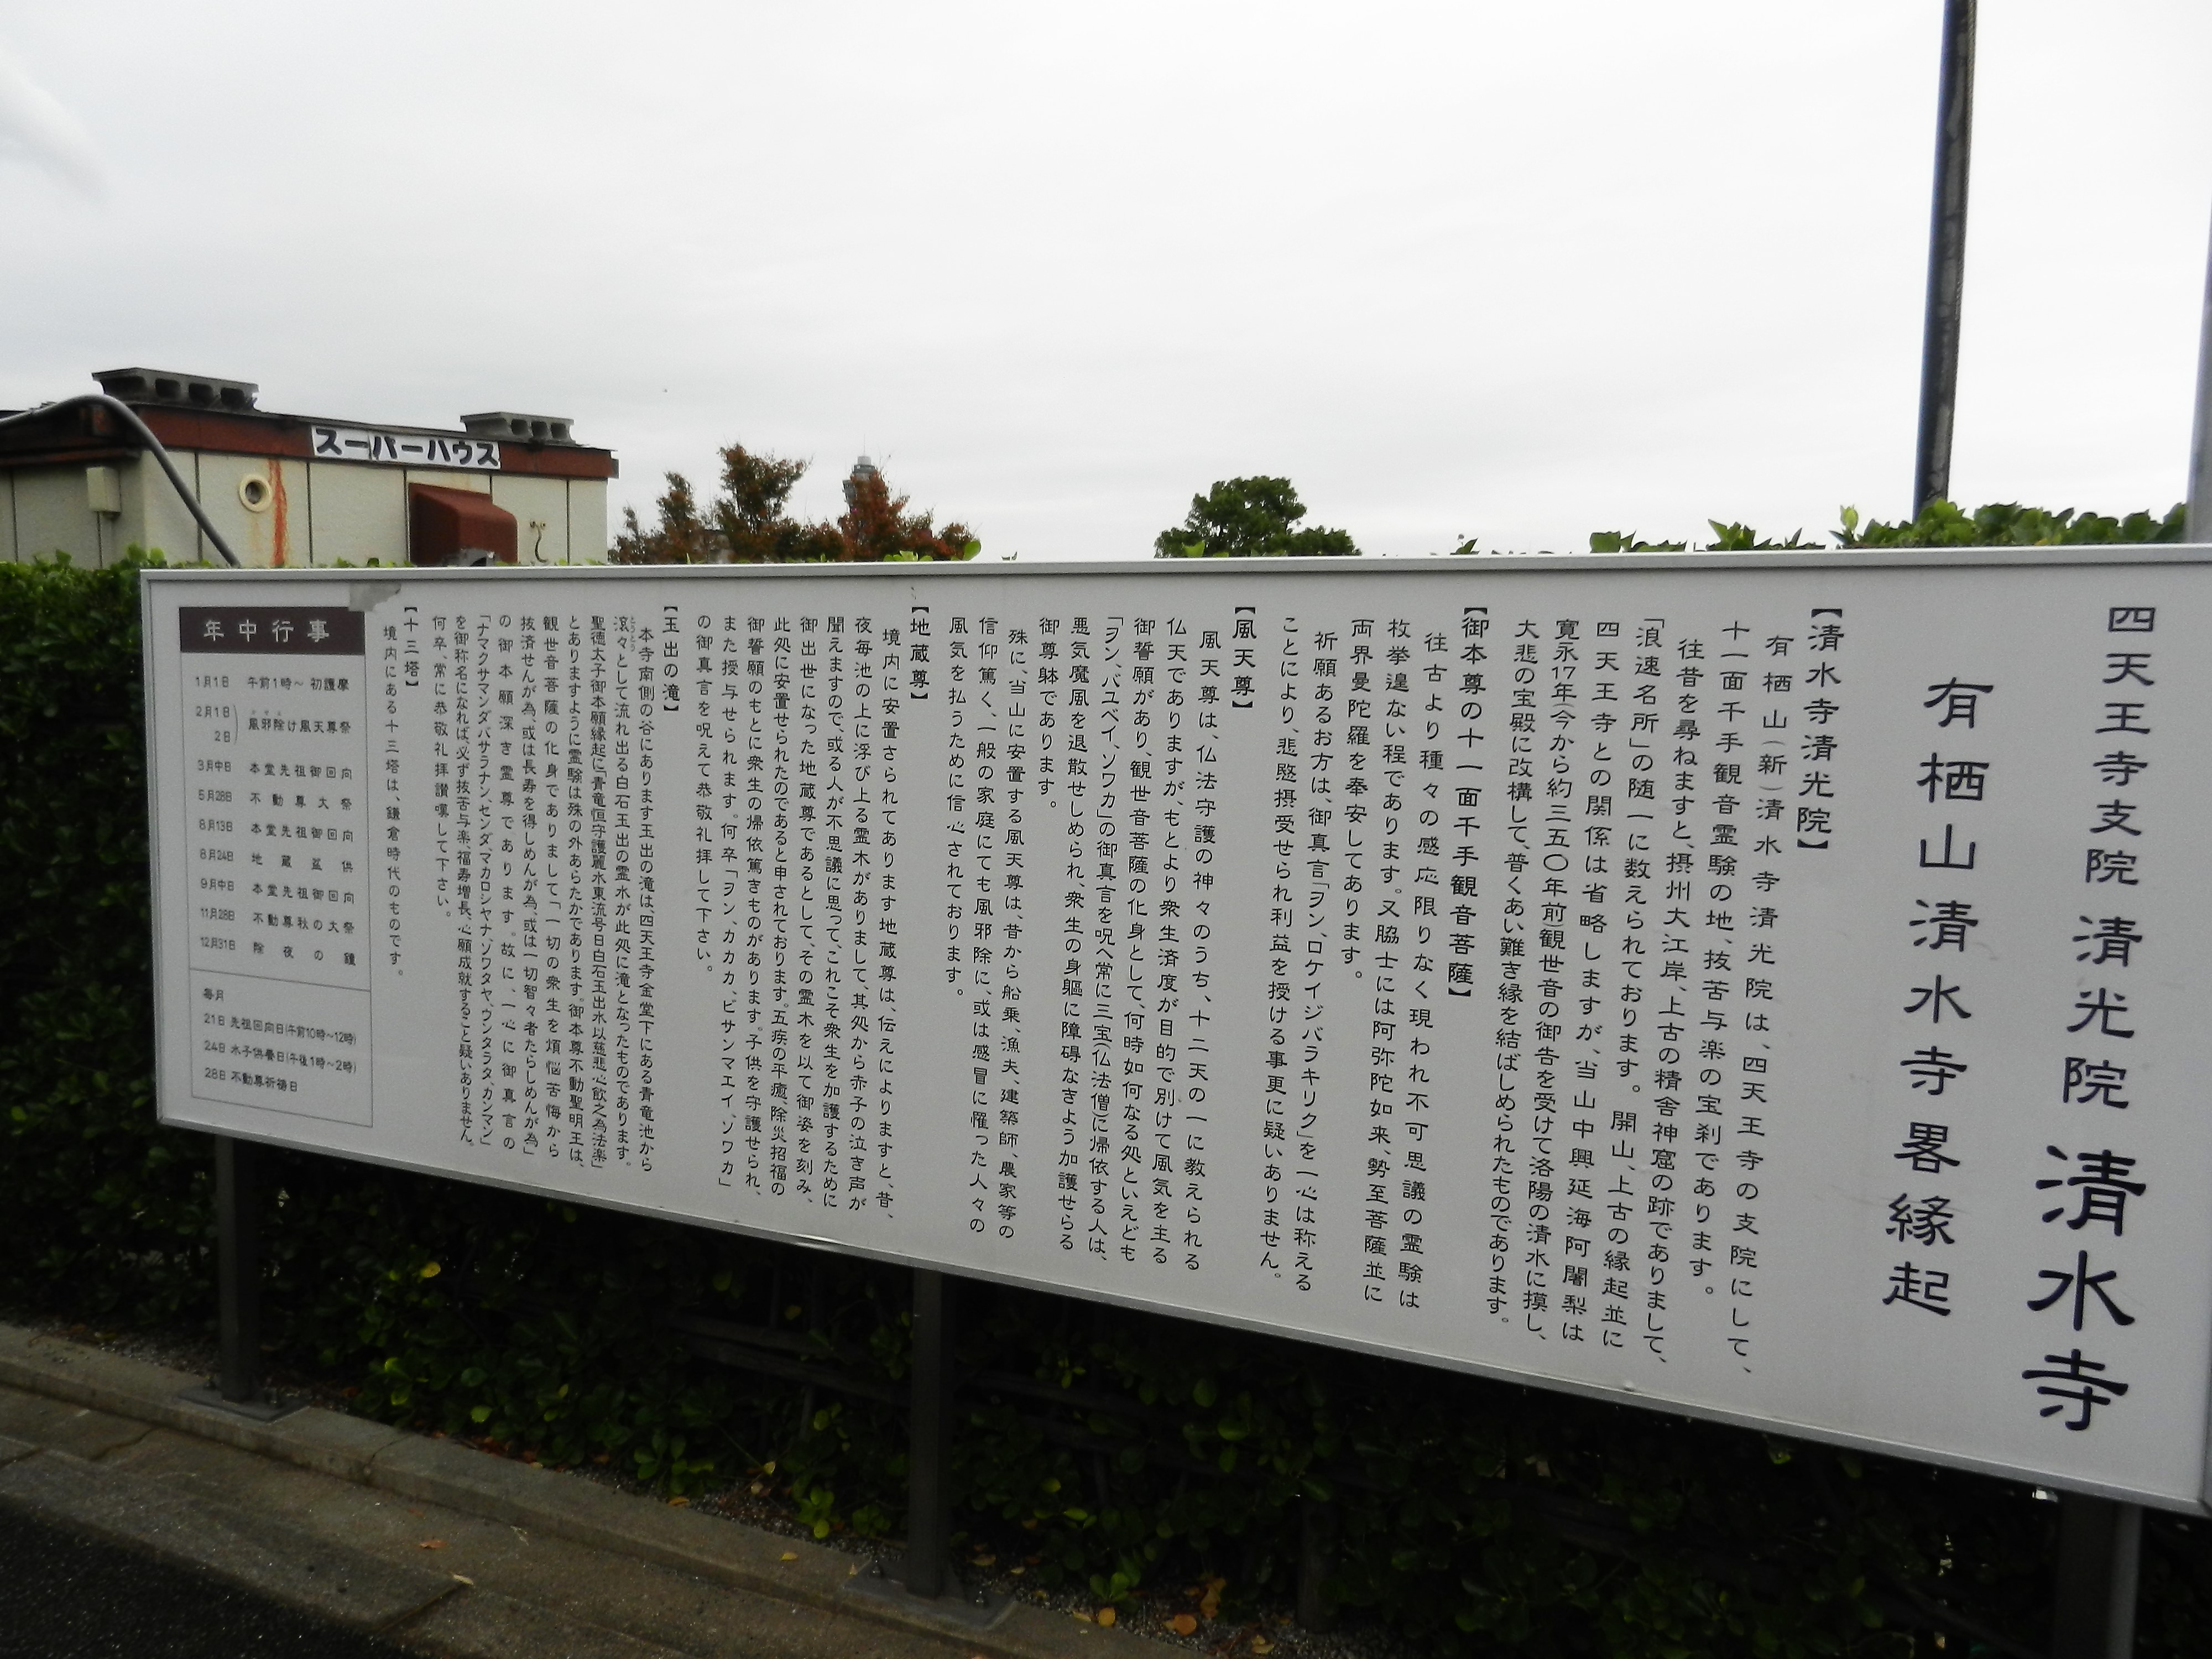 四天王寺支院 清光院 清水寺
有栖山清水寺畧縁起
【清水寺清光院】
有栖山(新)清水寺清光院は、四天王寺の支院にして、
十一面千手観音霊験の地、抜苦与楽の宝刹であります。
往昔を尋ねますと、摂州大江岸、上古の精舎神窟の跡でありまして、
「浪速名所」の随一に数えられております。開山、上古の縁起並に
四天王寺との関係は省略しますが、当山中興延海阿闍梨は
寛永17年(今から約三五〇年前)観世音の御告を受けて洛陽の清水に摸し、
大悲の宝殿に改構して、普くあい難き縁を結ばしめられたものであります。
【御本尊の十一面千手観音菩薩】
往古より種々の感応限りなく現われ不可思議の霊験は
枚挙遑ない程であります。又脇士には阿弥陀如来、勢至菩薩並に
両界曼陀羅を奉安してあります。
祈願あるお方は、御真言「ヲン、ロケイジバラキリク」を一心は称える
ことにより、悲愍摂受せられ利益を授ける事更に疑いありません。
【風天尊】
風天尊は、仏法守護の神々のうち、十二天の一に教えられる
仏天でありますが、もとより衆生済度が目的で別けて風気を主る
御誓願があり、観世音菩薩の化身として、何時如何なる処といえども
「ヲン、バユベイ、ソワカ」の御真言を呪へ常に三宝(仏法僧)に帰依する人は、
悪気魔風を退散せしめられ、衆生の身軀に障碍なきよう加護せらる
御尊躰であります。
殊に、当山に安置する風天尊は、昔から船乗、漁夫、建築師、農家等の
信仰篤く、一般の家庭にても風邪除に、或は感冒に罹った人々の
風気を払うために信心されております。
【地蔵尊】
境内に安置さられてあります地蔵尊は、伝えによりますと、昔、
夜毎池の上に浮び上る霊木がありまして、其処から赤子の泣き声が
聞えますので、或る人が不思議に思って、これこそ衆生を加護するために
御出世になった地蔵尊であるとして、その霊木を以て御姿を刻み、
此処に安置せられたのであると申されております。五疾の平癒、除災招福の
御誓願のもとに衆生の帰依篤きものがあります。子供を守護せられ、
また授与せられます。何卒「ヲン、カカカ、ビサンマエイ、ソワカ」
の御真言を呪えて恭敬礼拝して下さい。
【玉出の滝】
本寺南側の谷にあります玉出の滝は、四天王寺金堂下にある青竜池から
滾々として流れ出る白石玉出の霊水が此処に滝となったものであります。
聖徳太子御本願縁起に「青竜恒守護麗水東流号日白石玉出水以慈悲心飲之為法楽」
とありますように霊験は殊の外あらたかであります。御本尊不動聖明王は、
観世音菩薩の化身でありまして「一切の衆生を煩悩苦悔から
抜済せんが為、或は長寿を得しめんが為、或は一切智々者たらしめんが為」
の御本願深き霊尊であります。故に、一心に御真言の
「ナマクサマンダ、バサラナン、センダ、マカロシヤナ、ソワタヤ、ウンタラタ、カンマン」
を御称名になれば、必ず抜苦与楽、福寿増長、心願成就すること疑いありません。
何卒、常に恭敬礼拝讃嘆して下さい。
【十三塔】
境内にある十三塔は、鎌倉時代のものです。
年中行事
1月1日 午前1時～ 初護摩
2月1日
2日 風邪除け風天尊祭
3月中日 本堂先祖御回向
5月28日 不動尊大祭
8月13日 本堂先祖御回向
8月24日 地蔵盆供
9月中日 本堂先祖御回向
11月28日 不動尊秋の大祭
12月31日 除夜の鐘
毎月
21日 先祖回向日(午前10時～12時)
24日 水子供養日(午後1時～2時)
28日 不動尊祈祷日
スーパーハウス